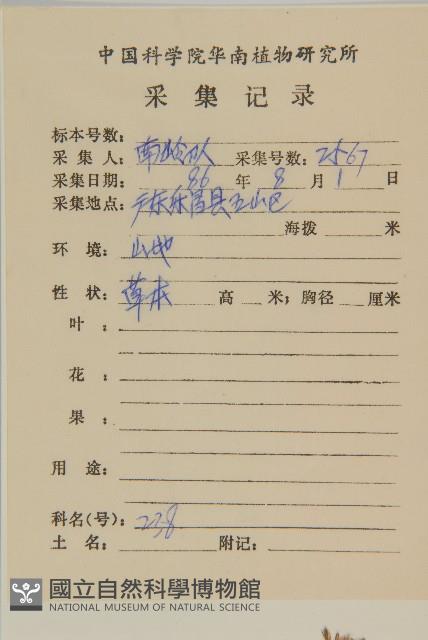 中国科学院华南植物研究所
采集记录
标本号数:
采集人: 南岭队 采集号数: 2567
采集日期: 86 年 8 月 1 日
采集地点: 广东乐昌县五山区
海拨 米
环境: 山地
性状: 草本 高 米; 胸径 厘米
叶:
花:
果:
用途:
科名(号): 238
土名: 附记:
國立自然科學博物館
NATIONAL MUSEUM OF NATURAL SCIENCE